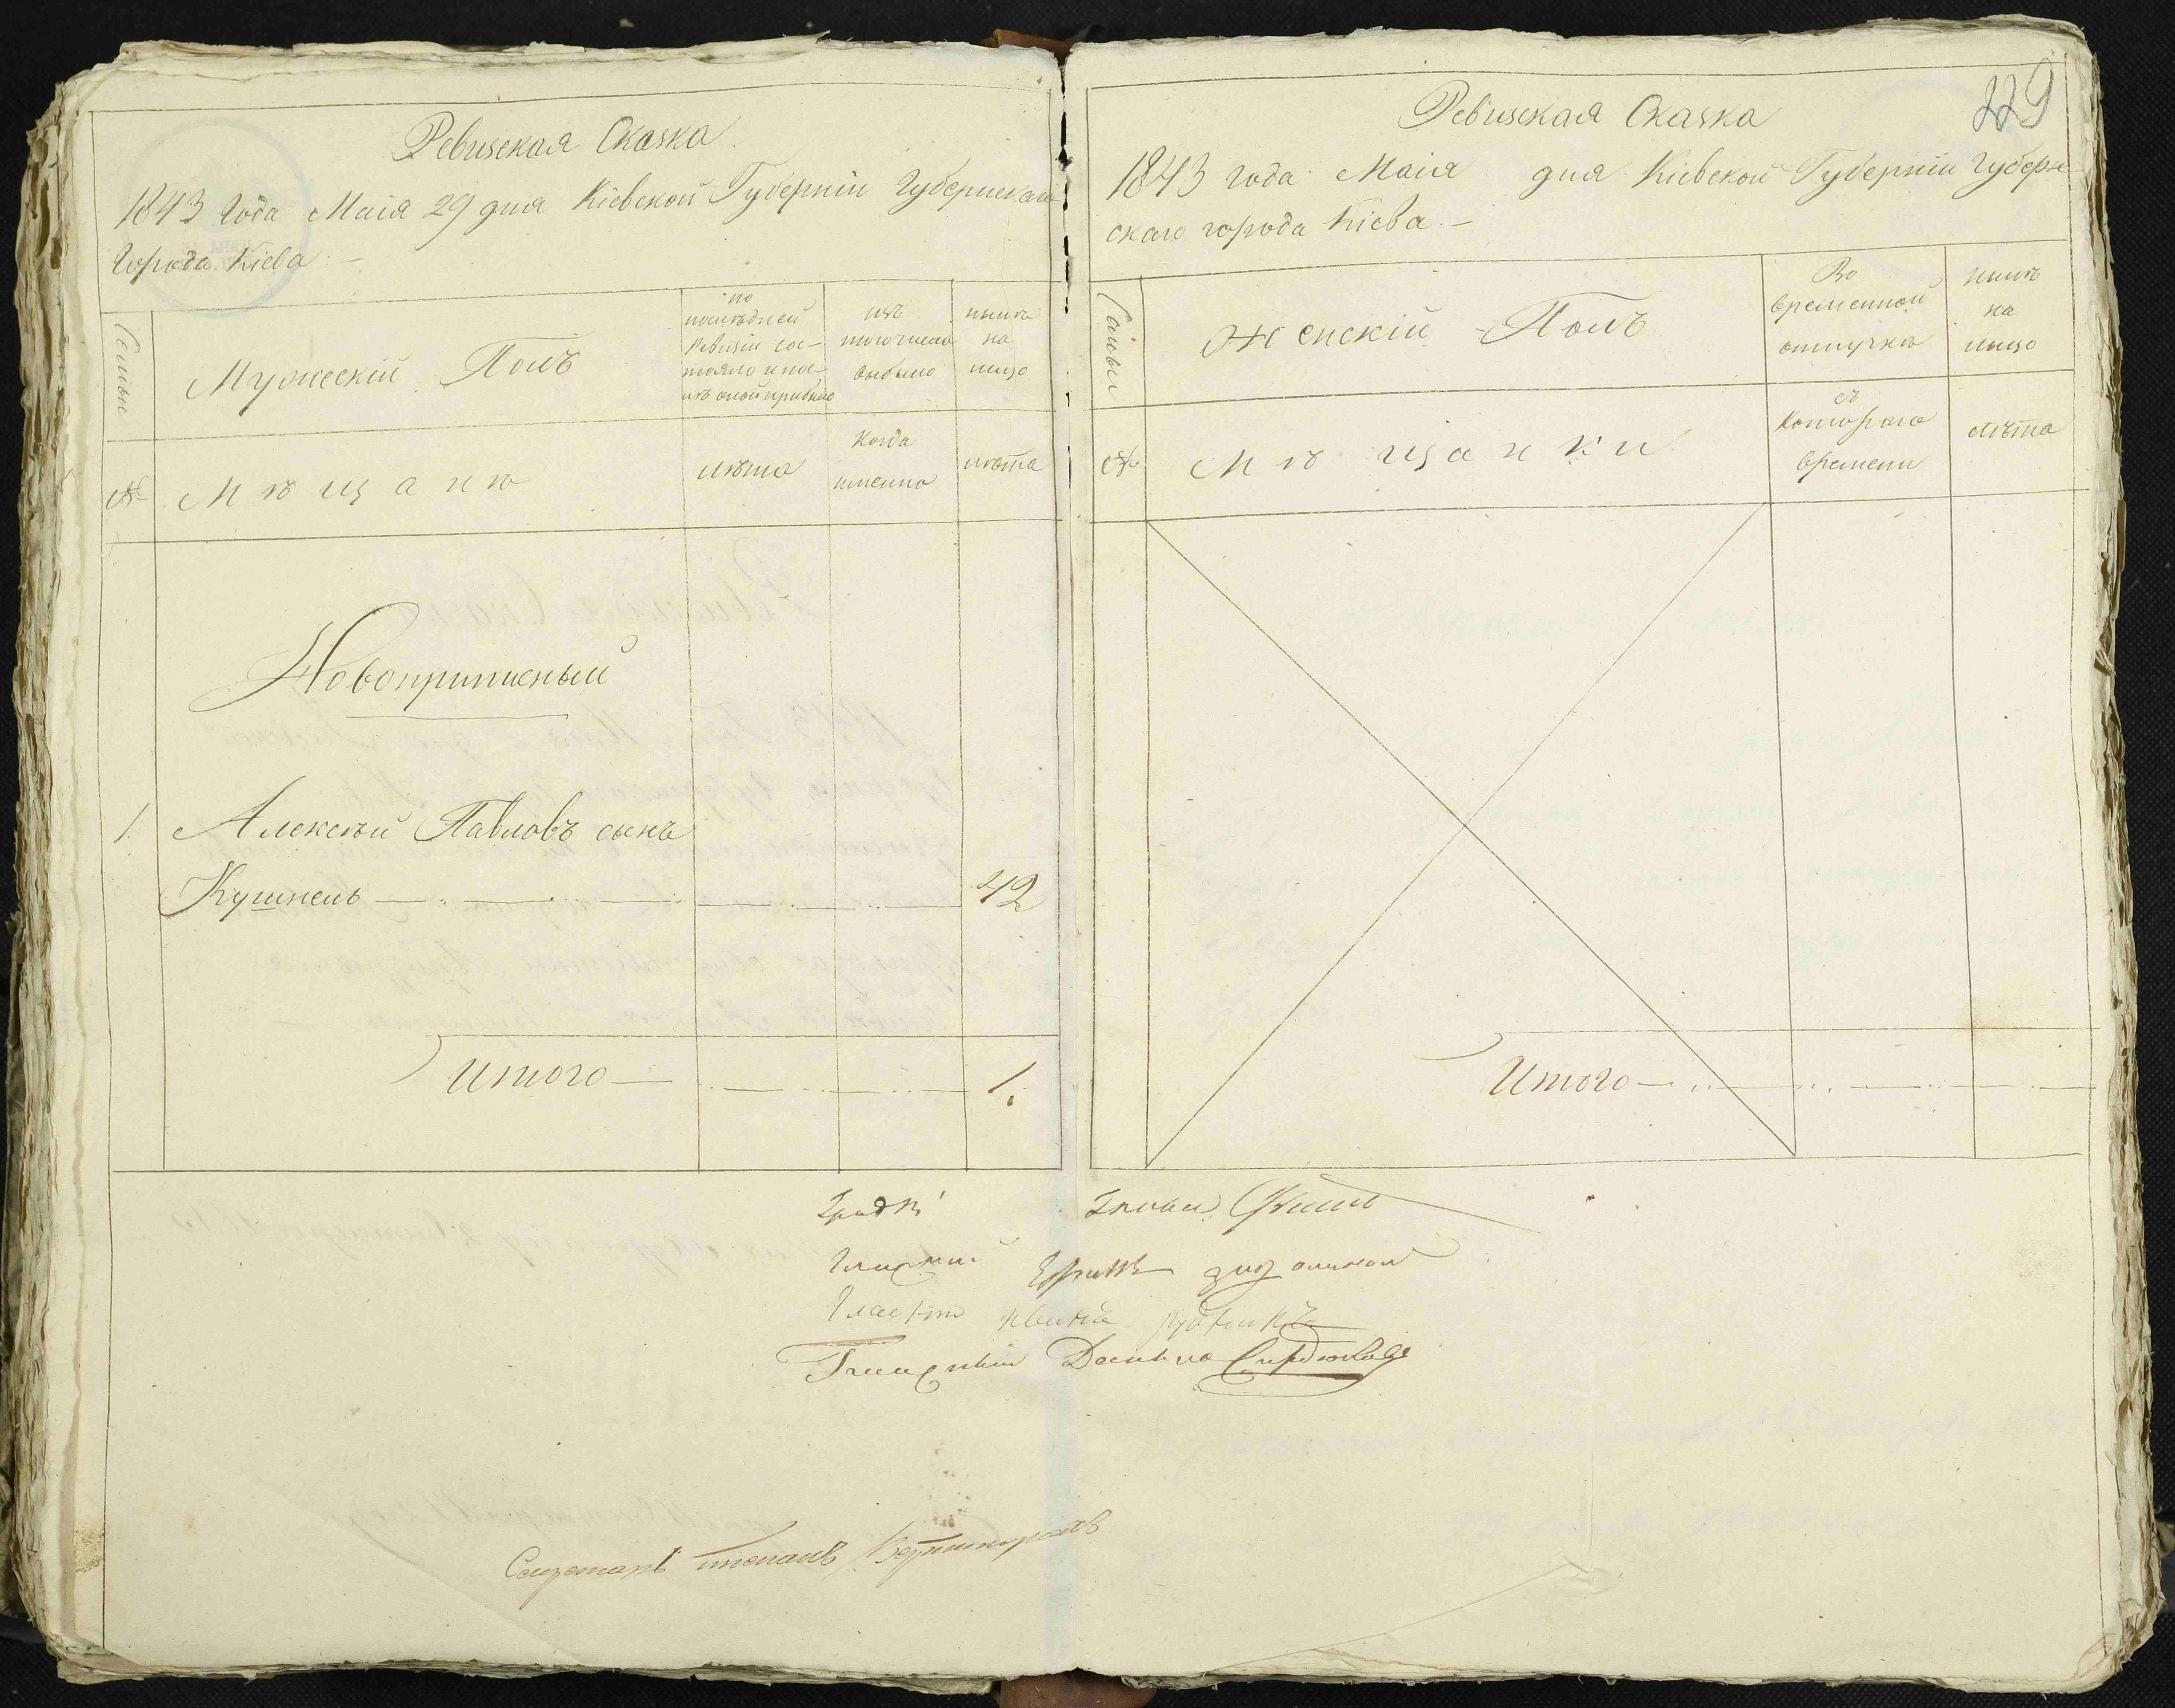 Ревизская Сказка
1843 Года Маія 29 дня Кіевской Губерніи Губернскаго
Города Кіева. —
Семьи
Мужескій Полъ
по
последней
Ревизіи сос-
тояло и пос-
лѣ оной прибыло
изъ
того числа
выбыло
нынѣ
на
лицо
№
Мѣщане
лѣта
Когда
именно
лѣта
Новоприписный
1. Алексѣй Павловъ сынъ
Кушнель 42
Итого 1.
229
Ревизская Сказка
1843 года Маія дня Кіевской Губерніи Губерн-
скаго города Кіева. —
Семьи
Женскій Полъ
Во
временной
отлучкѣ
нынѣ
на
лицо
№
Мѣщанки
съ
Котораго
времени
лѣта
Итого
Гласный
Гласный
Гласный
Секретарь